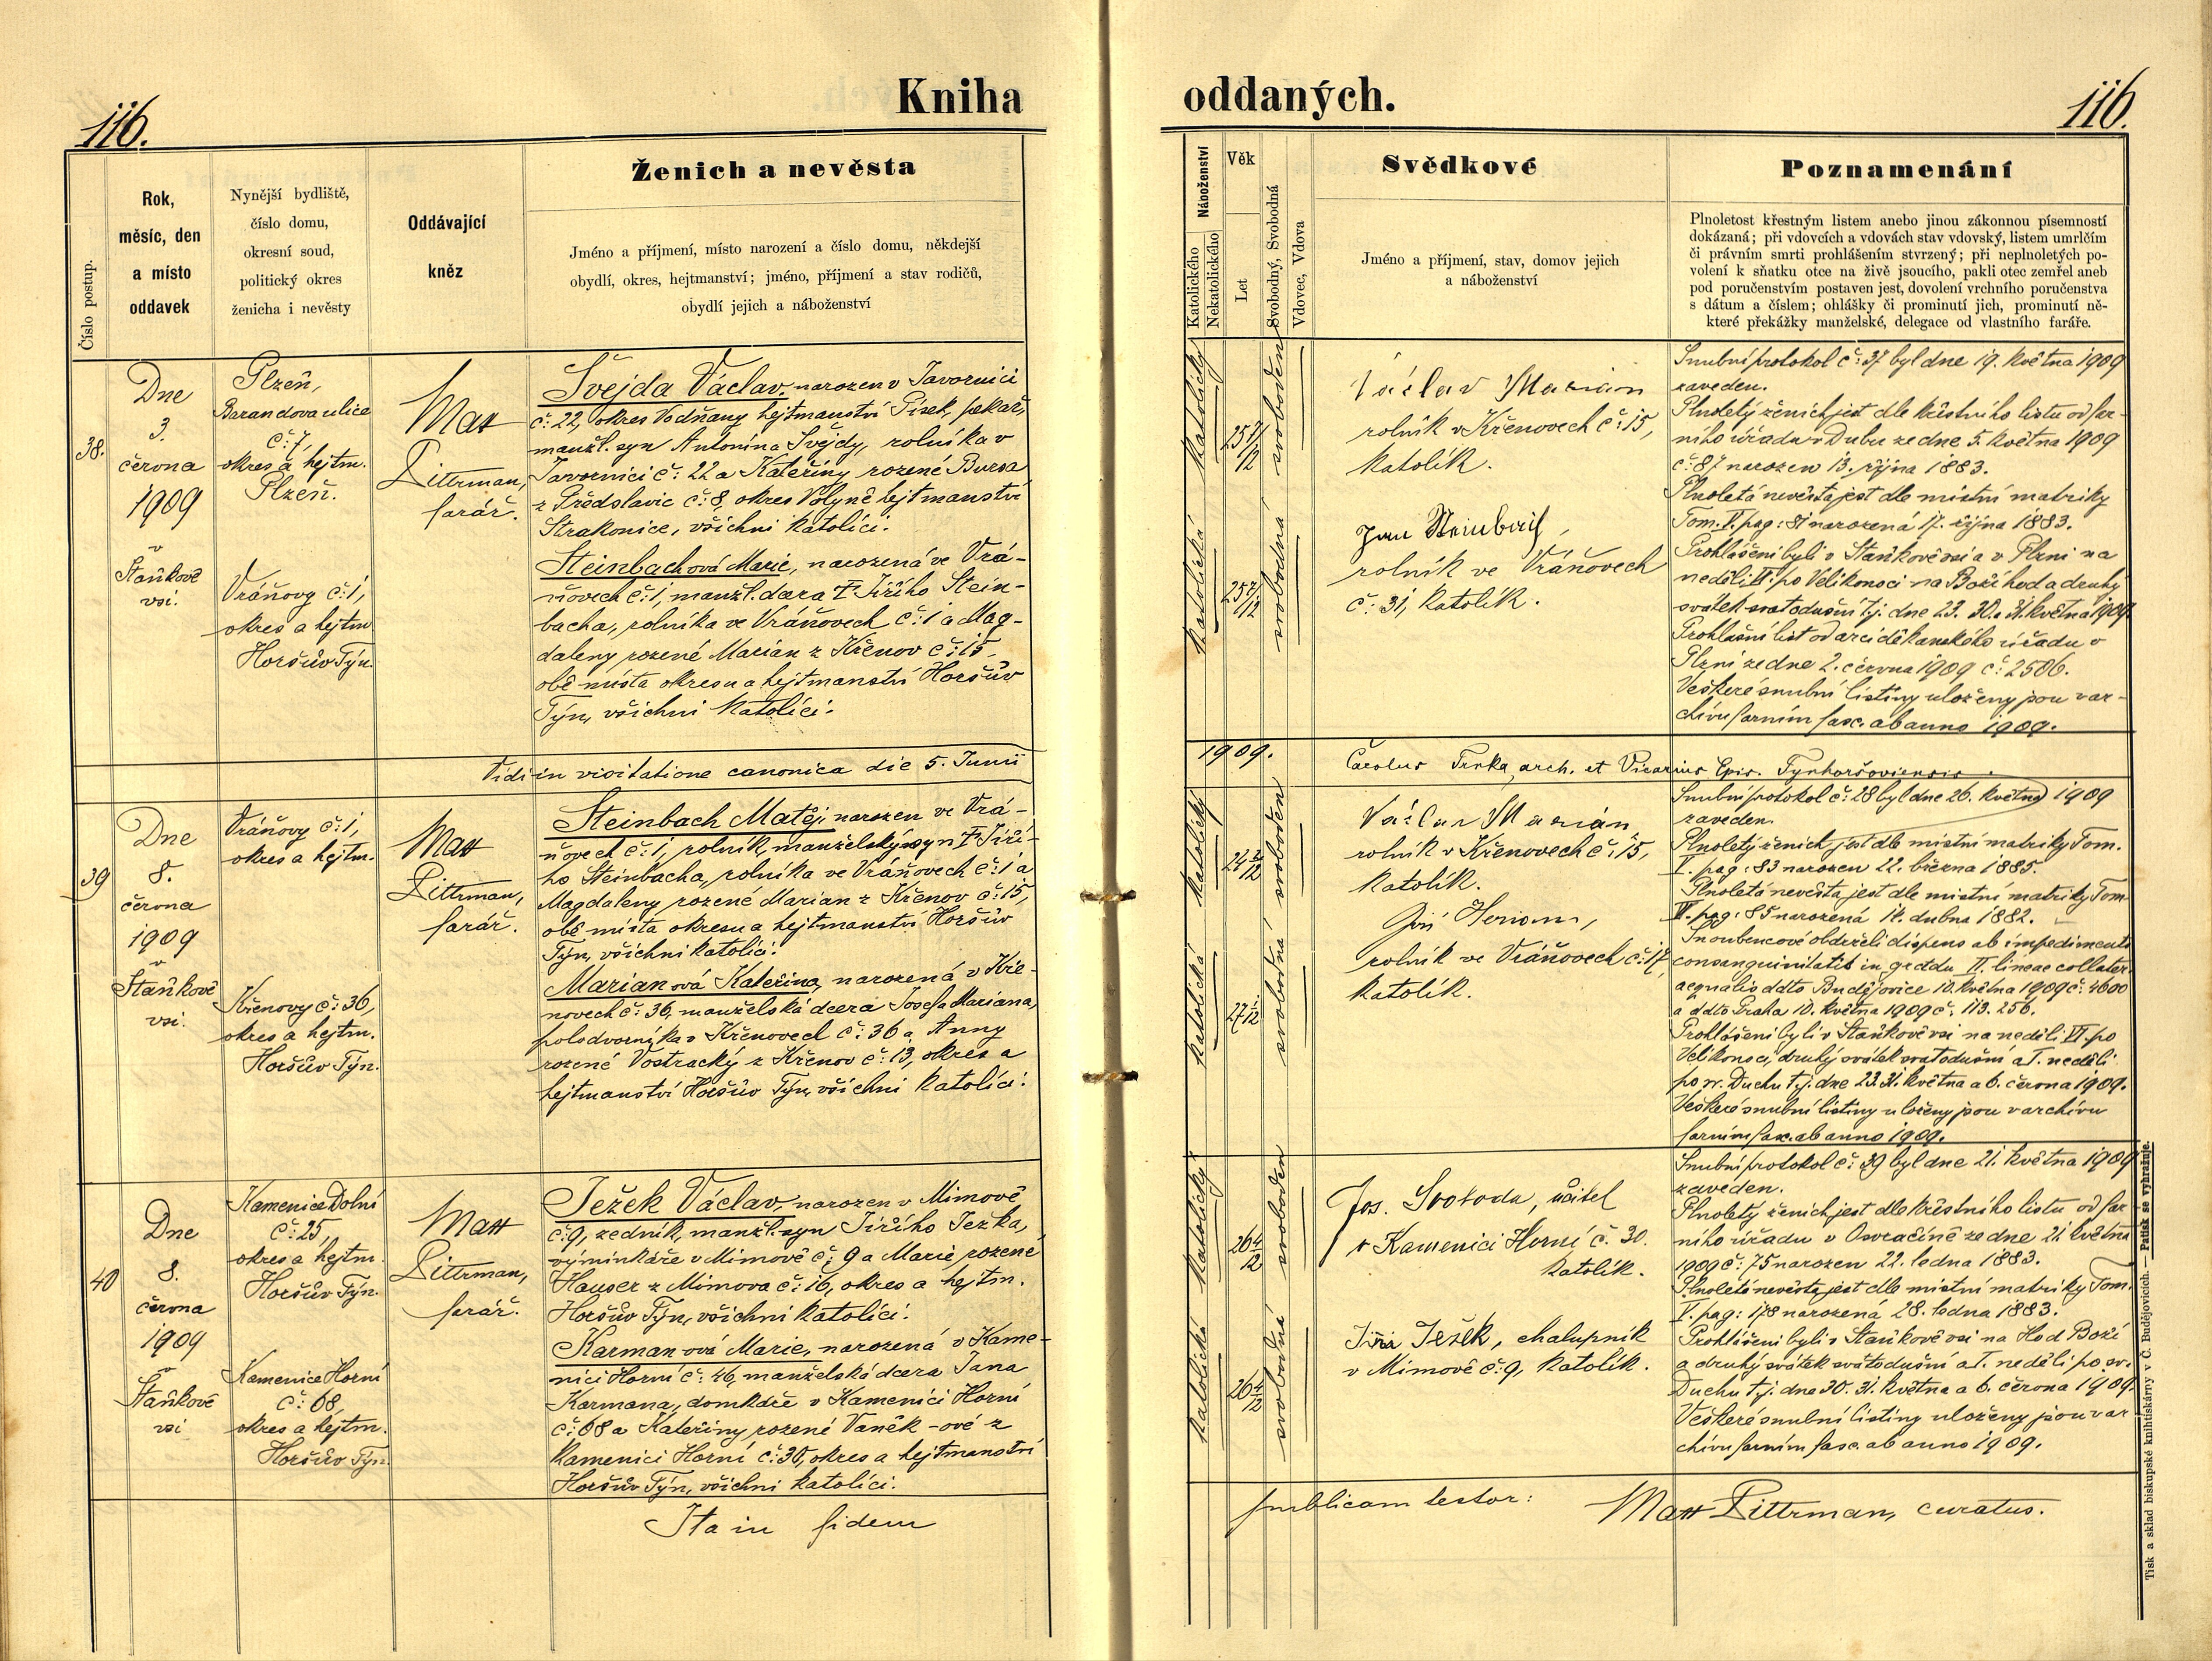 116.
Kniha
oddaných.
116.
Číslo postup.
Rok,
měsíc, den
a místo
oddavek
Nynější bydliště,
číslo domu,
okresní soud,
politický okres
ženicha i nevěsty
Oddávající
kněz
Ženich a nevěsta
Jméno a příjmení, místo narození a číslo domu, někdejší
obydlí, okres, hejtmanství; jméno, příjmení a stav rodičů,
obydlí jejich a náboženství
Náboženství
Katolického
Nekatolického
Věk
Let
Svobodný, Svobodná
Vdovec, Vdova
Svědkové
Jméno a příjmení, stav, domov jejich
a náboženství
Poznamenání
Plnoletost křestným listem anebo jinou zákonnou písemností
dokázaná; při vdovcích a vdovách stav vdovský, listem umrlčím
či právním smrti prohlášením stvrzený; při neplnoletých po-
volení k sňatku otce na živě jsoucího, pakli otec zemřel aneb
pod poručenstvím postaven jest, dovolení vrchního poručenstva
s dátum a číslem; ohlášky či prominutí jich, prominutí ně-
které překážky manželské, delegace od vlastního faráře.
38.
Dne
3.
června
1909
v
Staňkově
vsi.
Plzeň,
Barandova ulice
č: 7,
okres a hejtm.
Plzeň.
Vráňovy č: 1,
okres a hejtm.
Horšův Týn.
Matt
Pittrman,
farář.
Švejda Václav, narozen v Javornici
č: 22, okres Vodňany hejtmanství Písek, pekař,
manžl. syn Antonína Švejdy, rolníka v
Javornici č: 22 a Kateřiny rozené Bursa
z Předslavic č: 8, okres Volyně hejtmanství
Strakonice, všichni katolíci.
Steinbachová Marie, narozená ve Vrá-
ňovech č: 1, manžl. dcera † Jiřího Stein-
bacha, rolníka ve Vráňovech č: 1 a Mag-
daleny rozené Marian z Křenov č: 15,
obě místa okresu a hejtmanství Horšův
Týn, všichni katolíci.
katolický
katolická
25 7/12
25 7/12
svoboden
svobodná
Václav Marian
rolník v Křenovech č: 15,
katolík.
Jan Steinbach,
rolník ve Vráňovech
č: 31, katolík.
Snubní protokol č: 37 byl dne 19. května 1909
zaveden.
Plnoletý ženich jest dle křestního listu od far-
ního úřadu v Dubu ze dne 5. května 1909
č: 87 narozen 13. října 1883.
Plnoletá nevěsta jest dle místní matriky
Tom. V. pag: 81 narozená 17. října 1883.
Prohlášeni byli v Staňkově vsi a v Plzni na
neděli VI. po Velikonoci na Boží hod a druhý
svátek svatodušní tj. dne 23. 30. a 31. května 1909.
Prohlašní list od arciděkanského úřadu v
Plzni ze dne 2. června 1909 č: 2506.
Veškeré snubní listiny uloženy jsou v ar-
chivu farním fasc. ab anno 1909.
Vidi in visitatione canonica die 5. Junii
1909.
Carolus Trnka, arch. et Vicarius Epis. Tynhoršoviensis.
39
Dne
8.
června
1909
v
Staňkově
vsi.
Vráňovy č: 1,
okres a hejtm.
Křenovy č: 36,
okres a hejtm.
Horšův Týn.
Matt
Pittrman,
farář.
Steinbach Matěj, narozen ve Vrá-
ňovech č: 1, rolník, manželský syn † Jiří-
ho Steinbacha, rolníka ve Vráňovech č: 1 a
Magdaleny rozené Marian z Křenov č: 15,
obě místa okresu a hejtmanství Horšův
Týn, všichni katolíci.
Marianová Kateřina, narozená v Kře-
novech č: 36, manželská dcera Josefa Mariana,
polodvorníka v Křenovech č: 36 a Anny
rozené Vostracký z Křenov č: 13, okres a
hejtmanství Horšův Týn, všichni katolíci.
katolický
katolická
24 2/12
27 1/12
svoboden
svobodná
Václav Marián
rolník v Křenovech č: 15,
katolík.
Jiří
rolník ve Vráňovech č: 17,
katolík.
Snubní protokol č: 28 byl dne 26. května 1909
zaveden.
Plnoletý ženich jest dle místní matriky Tom.
V. pag: 83 narozen 22. března 1885.
Plnoletá nevěsta jest dle místní matriky Tom.
VI. pag: 85 narozená 14. dubna 1882.
Snoubencové obdrželi dispens ab impedimento
consanguinitatis in gradu II. lineae collater.
aequalis ddto Budějovice 10. května 1909 č: 4600
a ddto Praha 10. května 1909 č: 113.256.
Prohlášeni byli v Staňkově vsi na neděli VI. po
Velikonoci, druhý svátek svatodušní a I. neděli
po sv. Duchu t.j. dne 23. 31. května a 6. června 1909.
Veškeré snubní listiny uloženy jsou v archivu
farním fasc. ab anno 1909.
40
Dne
8.
června
1909
v
Staňkově
vsi
Kamenice Dolní
č: 25,
okres a hejtm.
Horšův Týn.
Kamenice Horní
č: 68,
okres a hejtm.
Horšův Týn.
Matt
Pittrman,
farář.
Ježek Václav, narozen v Mimově
č: 9, zedník, manžl. syn Jiřího Ježka,
výminkáře v Mimově č: 9 a Marie rozené
Hauser z Mimova č: 16, okres a hejtm.
Horšův Týn, všichni katolíci.
Karmanová Marie, narozená v Kame-
nici Horní č: 46, manželská dcera Jana
Karmana, domkáře v Kamenici Horní
č: 68 a Kateřiny rozené Vaněk-ové z
Kamenici Horní č: 30, okres a hejtmanství
Horšův Týn, všichni katolíci.
katolický
katolická
26 4/12
26 4/12
svoboden
svobodná
Jos. Svoboda, učitel
v Kamenici Horní č. 30.
katolík.
Jiří Ježek, chalupník
v Mimově č: 9, katolík.
Snubní protokol č: 39 byl dne 21. května 1909
zaveden.
Plnoletý ženich jest dle křestního listu od far-
ního úřadu v Osvračíně ze dne 21. května
1909 č: 75 narozen 22. ledna 1883.
Plnoletá nevěsta jest dle místní matriky Tom.
V. pag: 178 narozená 28. ledna 1883.
Prohlášeni byli v Staňkově vsi na Hod Boží
a druhý svátek svatodušní a I. neděli po sv.
Duchu t.j. dne 30. 31. května a 6. června 1909.
Veškeré snubní listiny uloženy jsou v ar-
chivu farním fasc. ab anno 1909.
Ita in fidem
publicam testor:
Matt Pittrman, curatus.
Tisk a sklad biskupské knihtiskárny v Č. Budějovicích. — Patisk se vyhražuje.